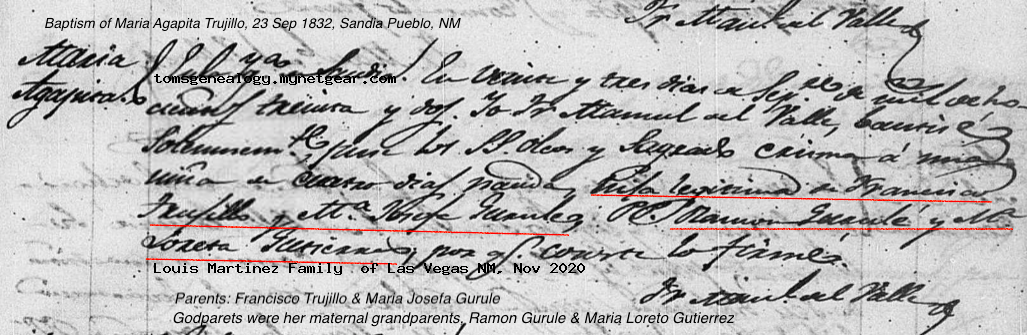 Baptism of Maria Agapita Trujillo, 23 Sep 1832, Sandia Pueblo, NM
Fr Manuel del Valle
Maria
Agapita
En veinte y tres dias de Sepe de mil ocho
tomsgenealogy.mynetgear.com
cientos treinta y dos Yo Fr Manuel del Valle, bautisé
solemnemte puse los SS oleos y Sagrado crisma á una
niña de cuatro dias nacida, hija legitima de Francisco
Trujillo y Ma Josefa Gurulé, P.P. Ramon Gurulé y Ma
Loreta Gutierres, y por q. conste lo firmé.
Louis Martinez Family of Las Vegas NM, Nov 2020
Fr Manuel del Valle
Parents: Francisco Trujillo & Maria Josefa Gurule
Godparets were her maternal grandparents, Ramon Gurule & Maria Loreto Gutierrez